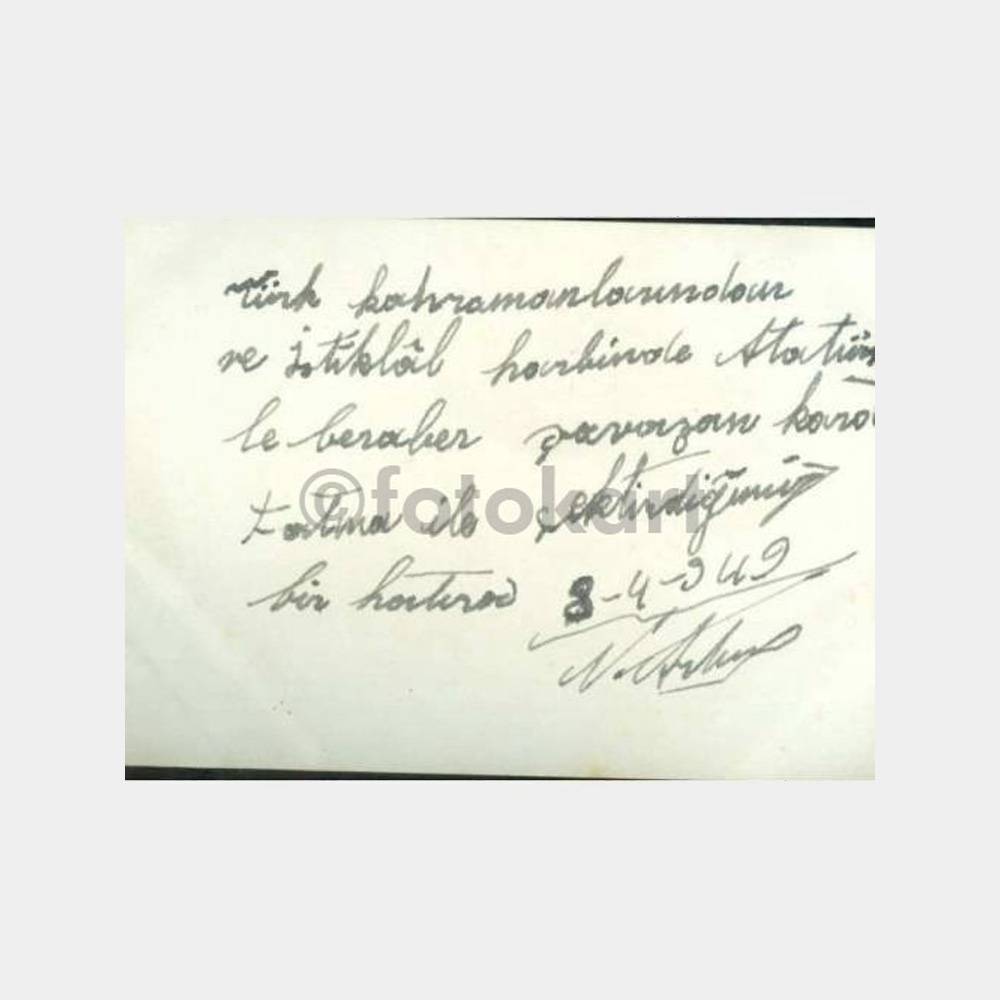 Türk kahramanlarından
ve İstiklâl harbinde Atatür
le beraber şavaşan kara
Fatma ile çektirdiğimiz
bir hatıra 8-4-949
©fotokart